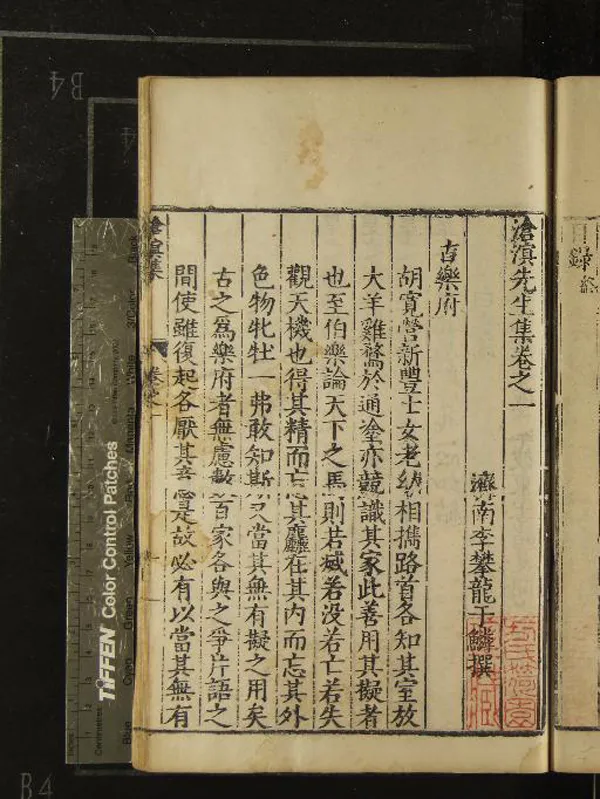 滄溟先生集卷之一
濟南李攀龍于鱗撰
古樂府
胡寬營新豐士女老幼相攜路首各知其室放
犬羊雞鶩於通塗亦競識其家此善用其擬者
也至伯樂論天下之馬則若滅若沒若亡若失
觀天機也得其精而忘其麤在其內而忘其外
色物牝牡一弗敢知斯又當其無有擬之用矣
古之為樂府者無慮數百家各與之爭片語之
間使雖復起各厭其意是故必有以當其無有
滄溟集
卷之一
目錄
TIFFEN Color Control Patches
Centimetres
Blue
Cyan
Green
Yellow
Red
Magenta
White
3/Color
Black
B4
B4